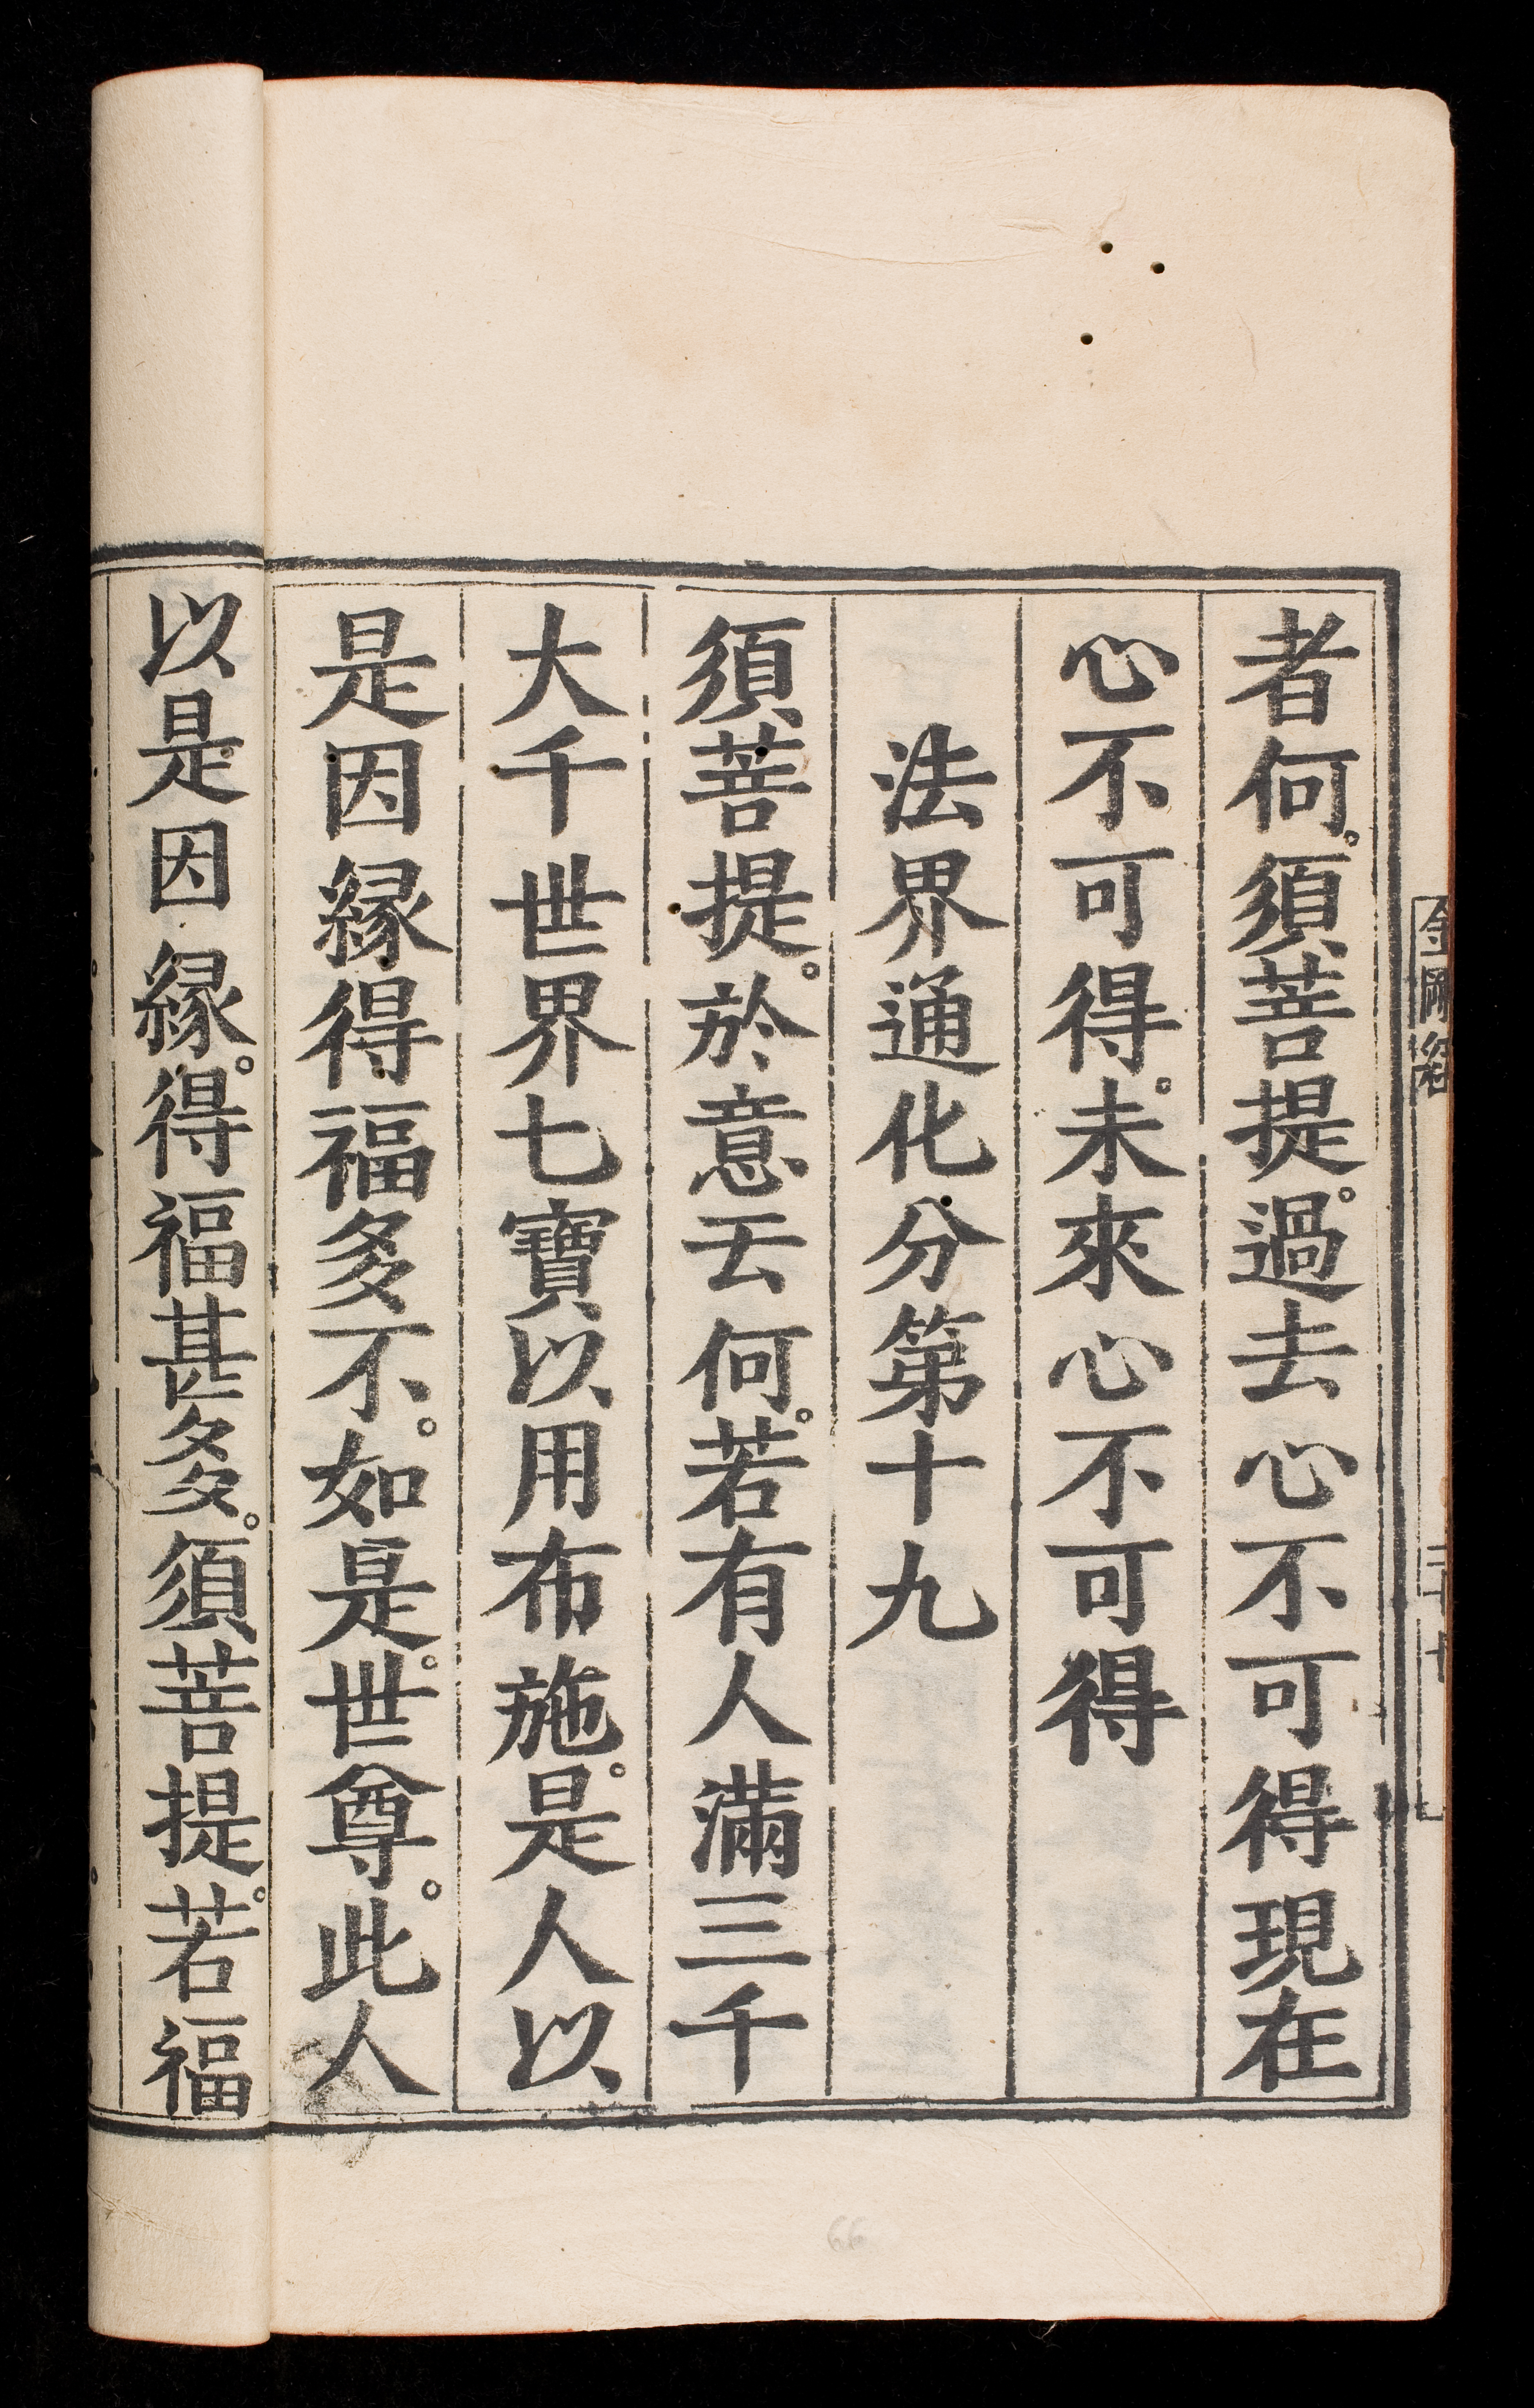 者何。須菩提。過去心不可得現在
心不可得。未來心不可得
法界通化分第十九
須菩提。於意云何。若有人滿三千
大千世界七寶以用布施。是人以
是因緣得福多不。如是。世尊。此人
以是因緣。得福甚多。須菩提。若福
金剛經
66